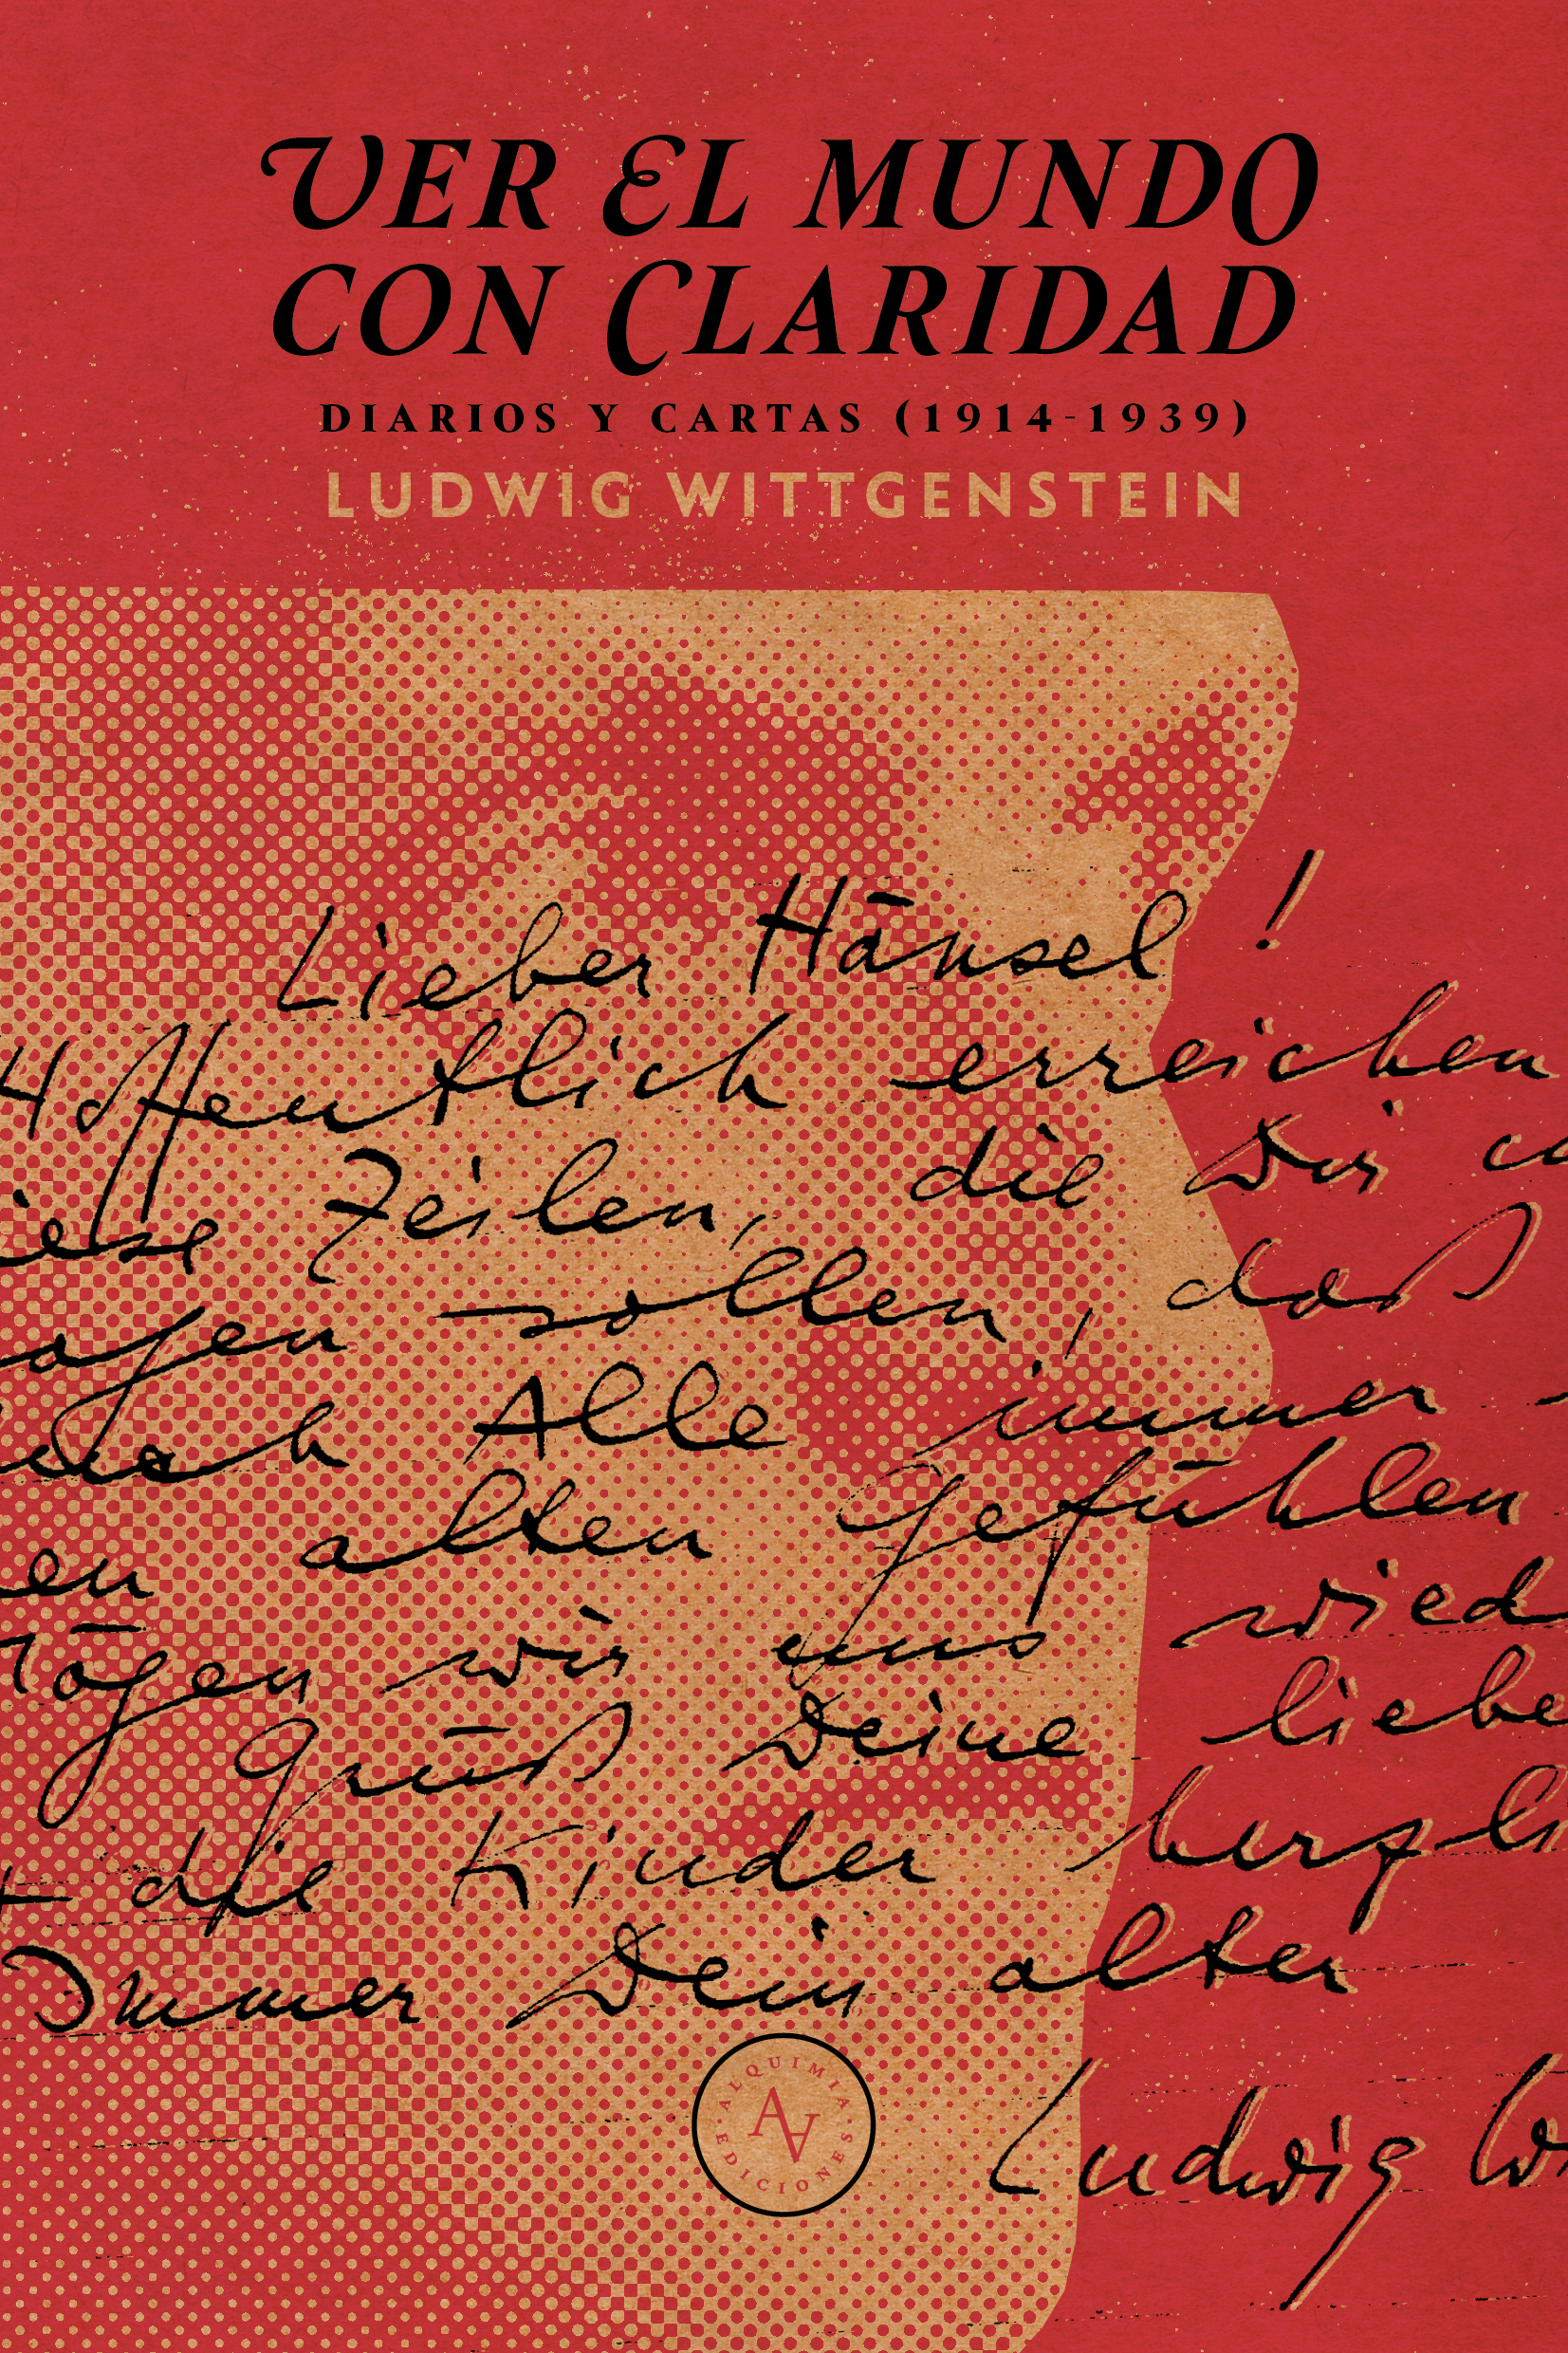 VER EL MUNDO
CON CLARIDAD
DIARIOS Y CARTAS (1914-1939)
LUDWIG WITTGENSTEIN
Lieber Hänsel!
Hoffentlich erreichen
iese Zeilen, die Dir
agen sollen, daß
noch Alle immer
en alten Gefühlen
mögen wir uns wied
Grüß Deine liebe
die Kinder herzli
Immer Dein alter
Ludwig W
ALQUIMIA
AA
EDICIONES